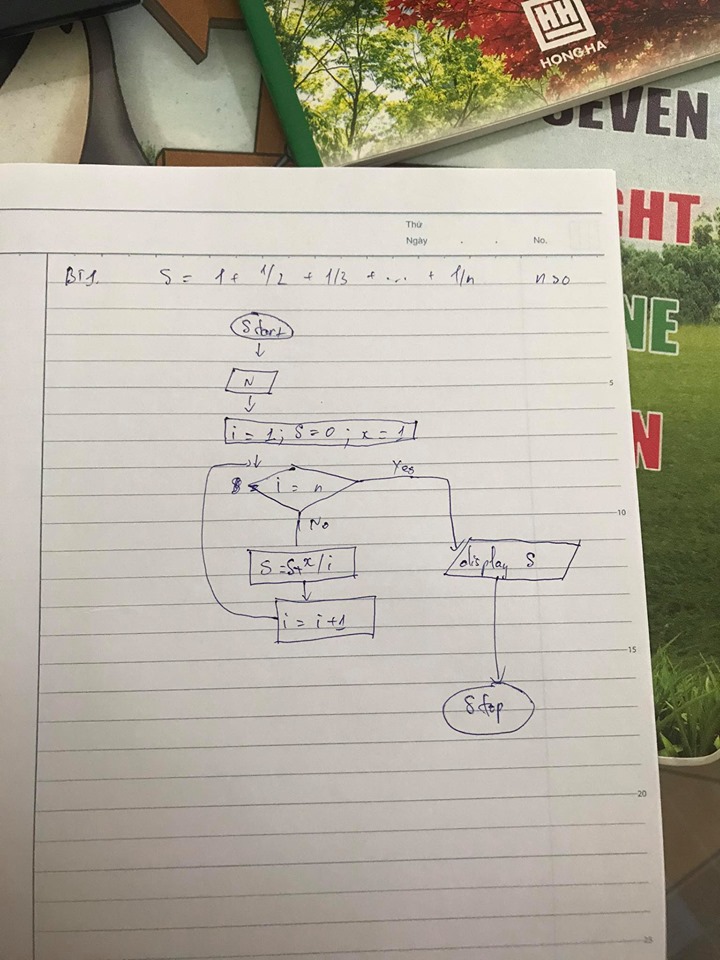 HH
HONG HA
SEVEN
GHT
NE
N
Thứ
Ngày . . No.
BT1. S = 1 + 1/2 + 1/3 + ... + 1/n n>0
Start
N
5
i = 1; S=0; x=1
i = n
Yes
10
No
S = S+x/i
display S
i = i+1
15
Stop
20
25